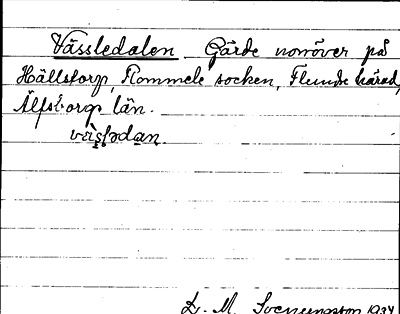 Vässledalen Gärde norröver på
Hällstorp, Rommele socken, Flundre härad,
Älfsborgs län.
D. M. Svenungsson 1934